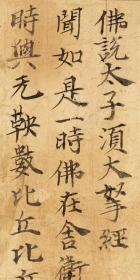 佛說太子湏大拏經
聞如是一時佛在舍衛
時與无鞅數比丘比丘